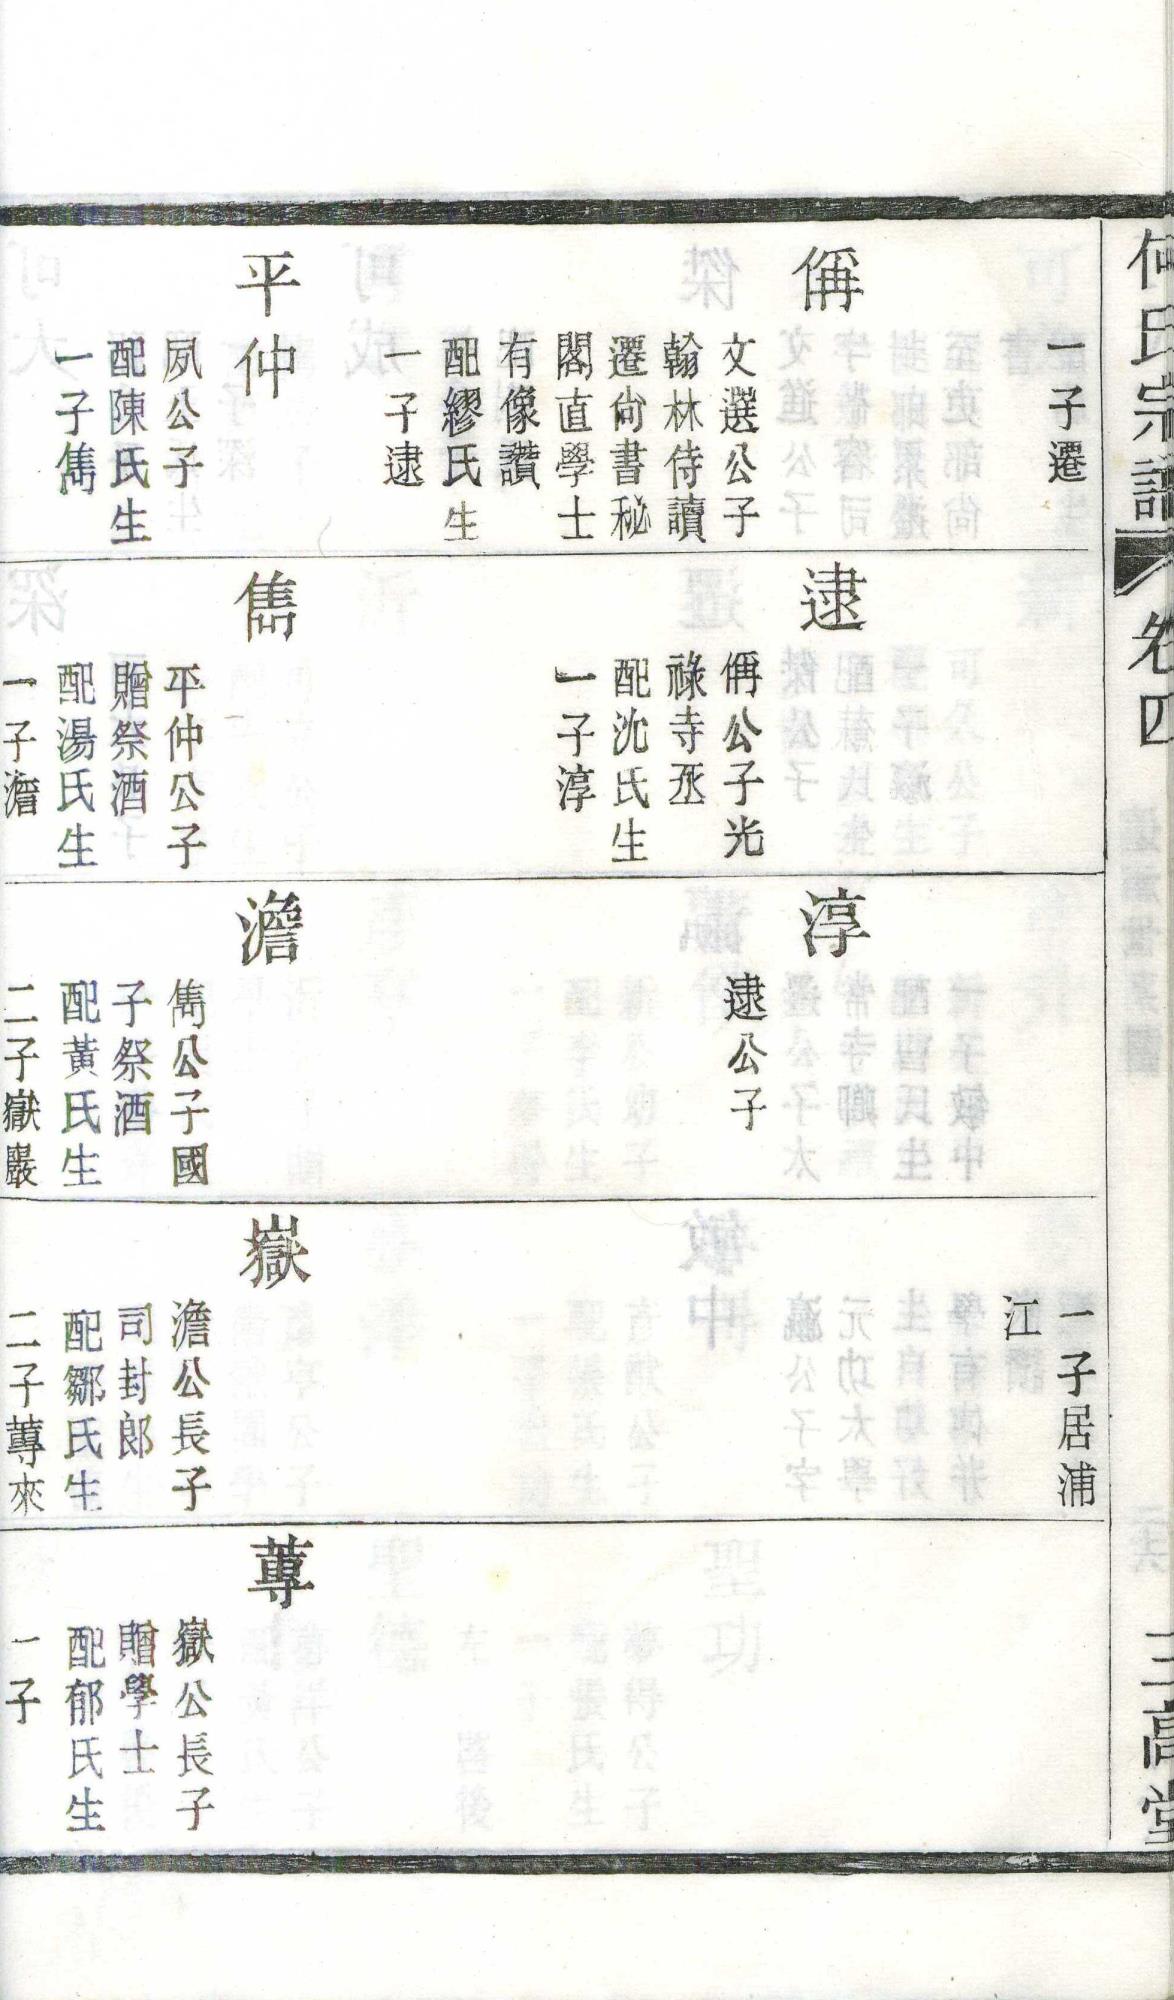 何氏宗譜
卷四
三高堂
一子遷
偁
文選公子
翰林侍讀
遷尙書秘
閣直學士
有像讚
配繆氏生
一子逮
平仲
夙公子
配陳氏生
一子雋
逮
偁公子光
祿寺丞
配沈氏生
一子淳
雋
平仲公子
贈祭酒
配湯氏生
一子澹
淳
逮公子
澹
雋公子國
子祭酒
配黃氏生
二子嶽巖
一子居浦
江
嶽
澹公長子
司封郎
配鄒氏生
二子蓴來
蓴
嶽公長子
贈學士
配郁氏生
一子